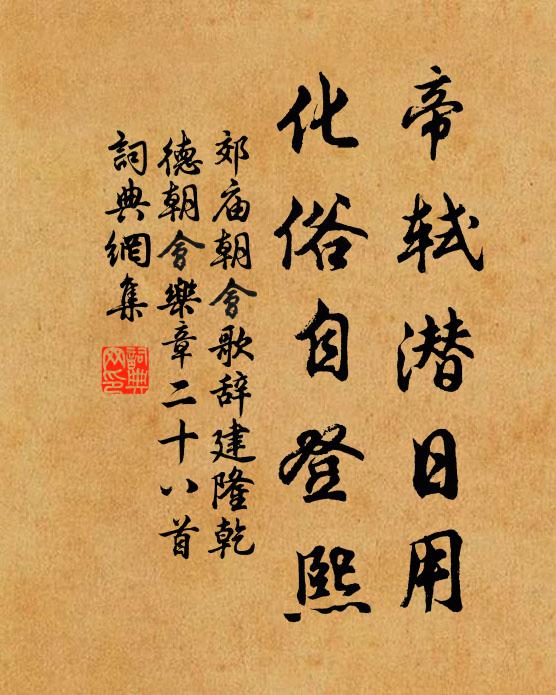 帝轼潜日用
化俗自登熙
郊庙朝会歌辞建隆乾
德朝会樂章二十八首
詞典網集